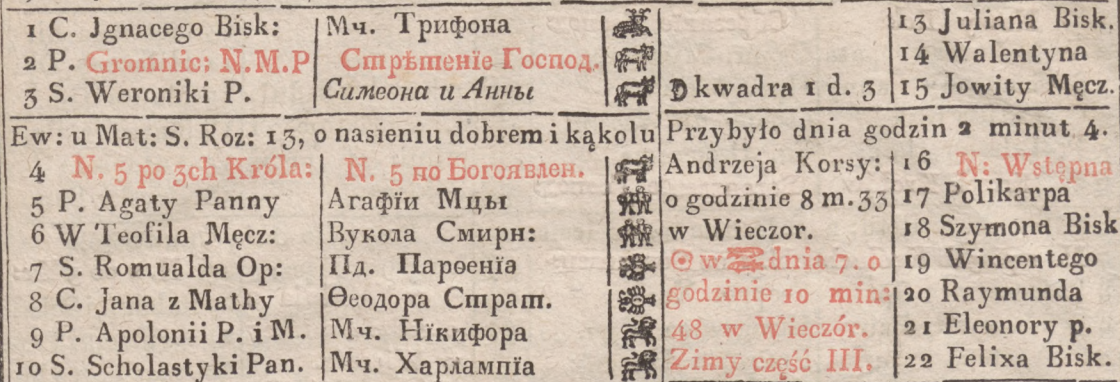 1 C. Jgnacego Bisk: Мч. Трифона 13 Juliana Bisk.
2 P. Gromnic: N.M.P Стрѣтенїе Господ. 14 Walentyna
3 S. Weroniki P. Симеона и Анны kwadra 1 d. 3 15 Jowity Męcz.
Ew: u Mat: S. Roz: 13, o nasieniu dobrem i kąkolu Przybyło dnia godzin 2 minut 4.
4 N. 5 po 3ch Króla: N. 5 по Богоявлен. Andrzeja Korsy: 16 N: Wstępna
5 P. Agaty Panny Агафїи Мцы o godzinie 8 m.33 17 Polikarpa
6 W Teofila Męcz: Вукола Смирн: w Wieczor. 18 Szymona Bisk
7 S. Romualda Op: Пд. Парѳенїа ☉ w ♒ dnia 7. o 19 Wincentego
8 C. Jana z Mathy Ѳеодора Страт. godzinie 10 min: 20 Raymunda
9 P. Apolonii P. i M. Мч. Нїкифора 48 w Wieczór. 21 Eleonory p.
10 S. Scholastyki Pan. Мч. Харлампїа Zimy część III. 22 Felixa Bisk.